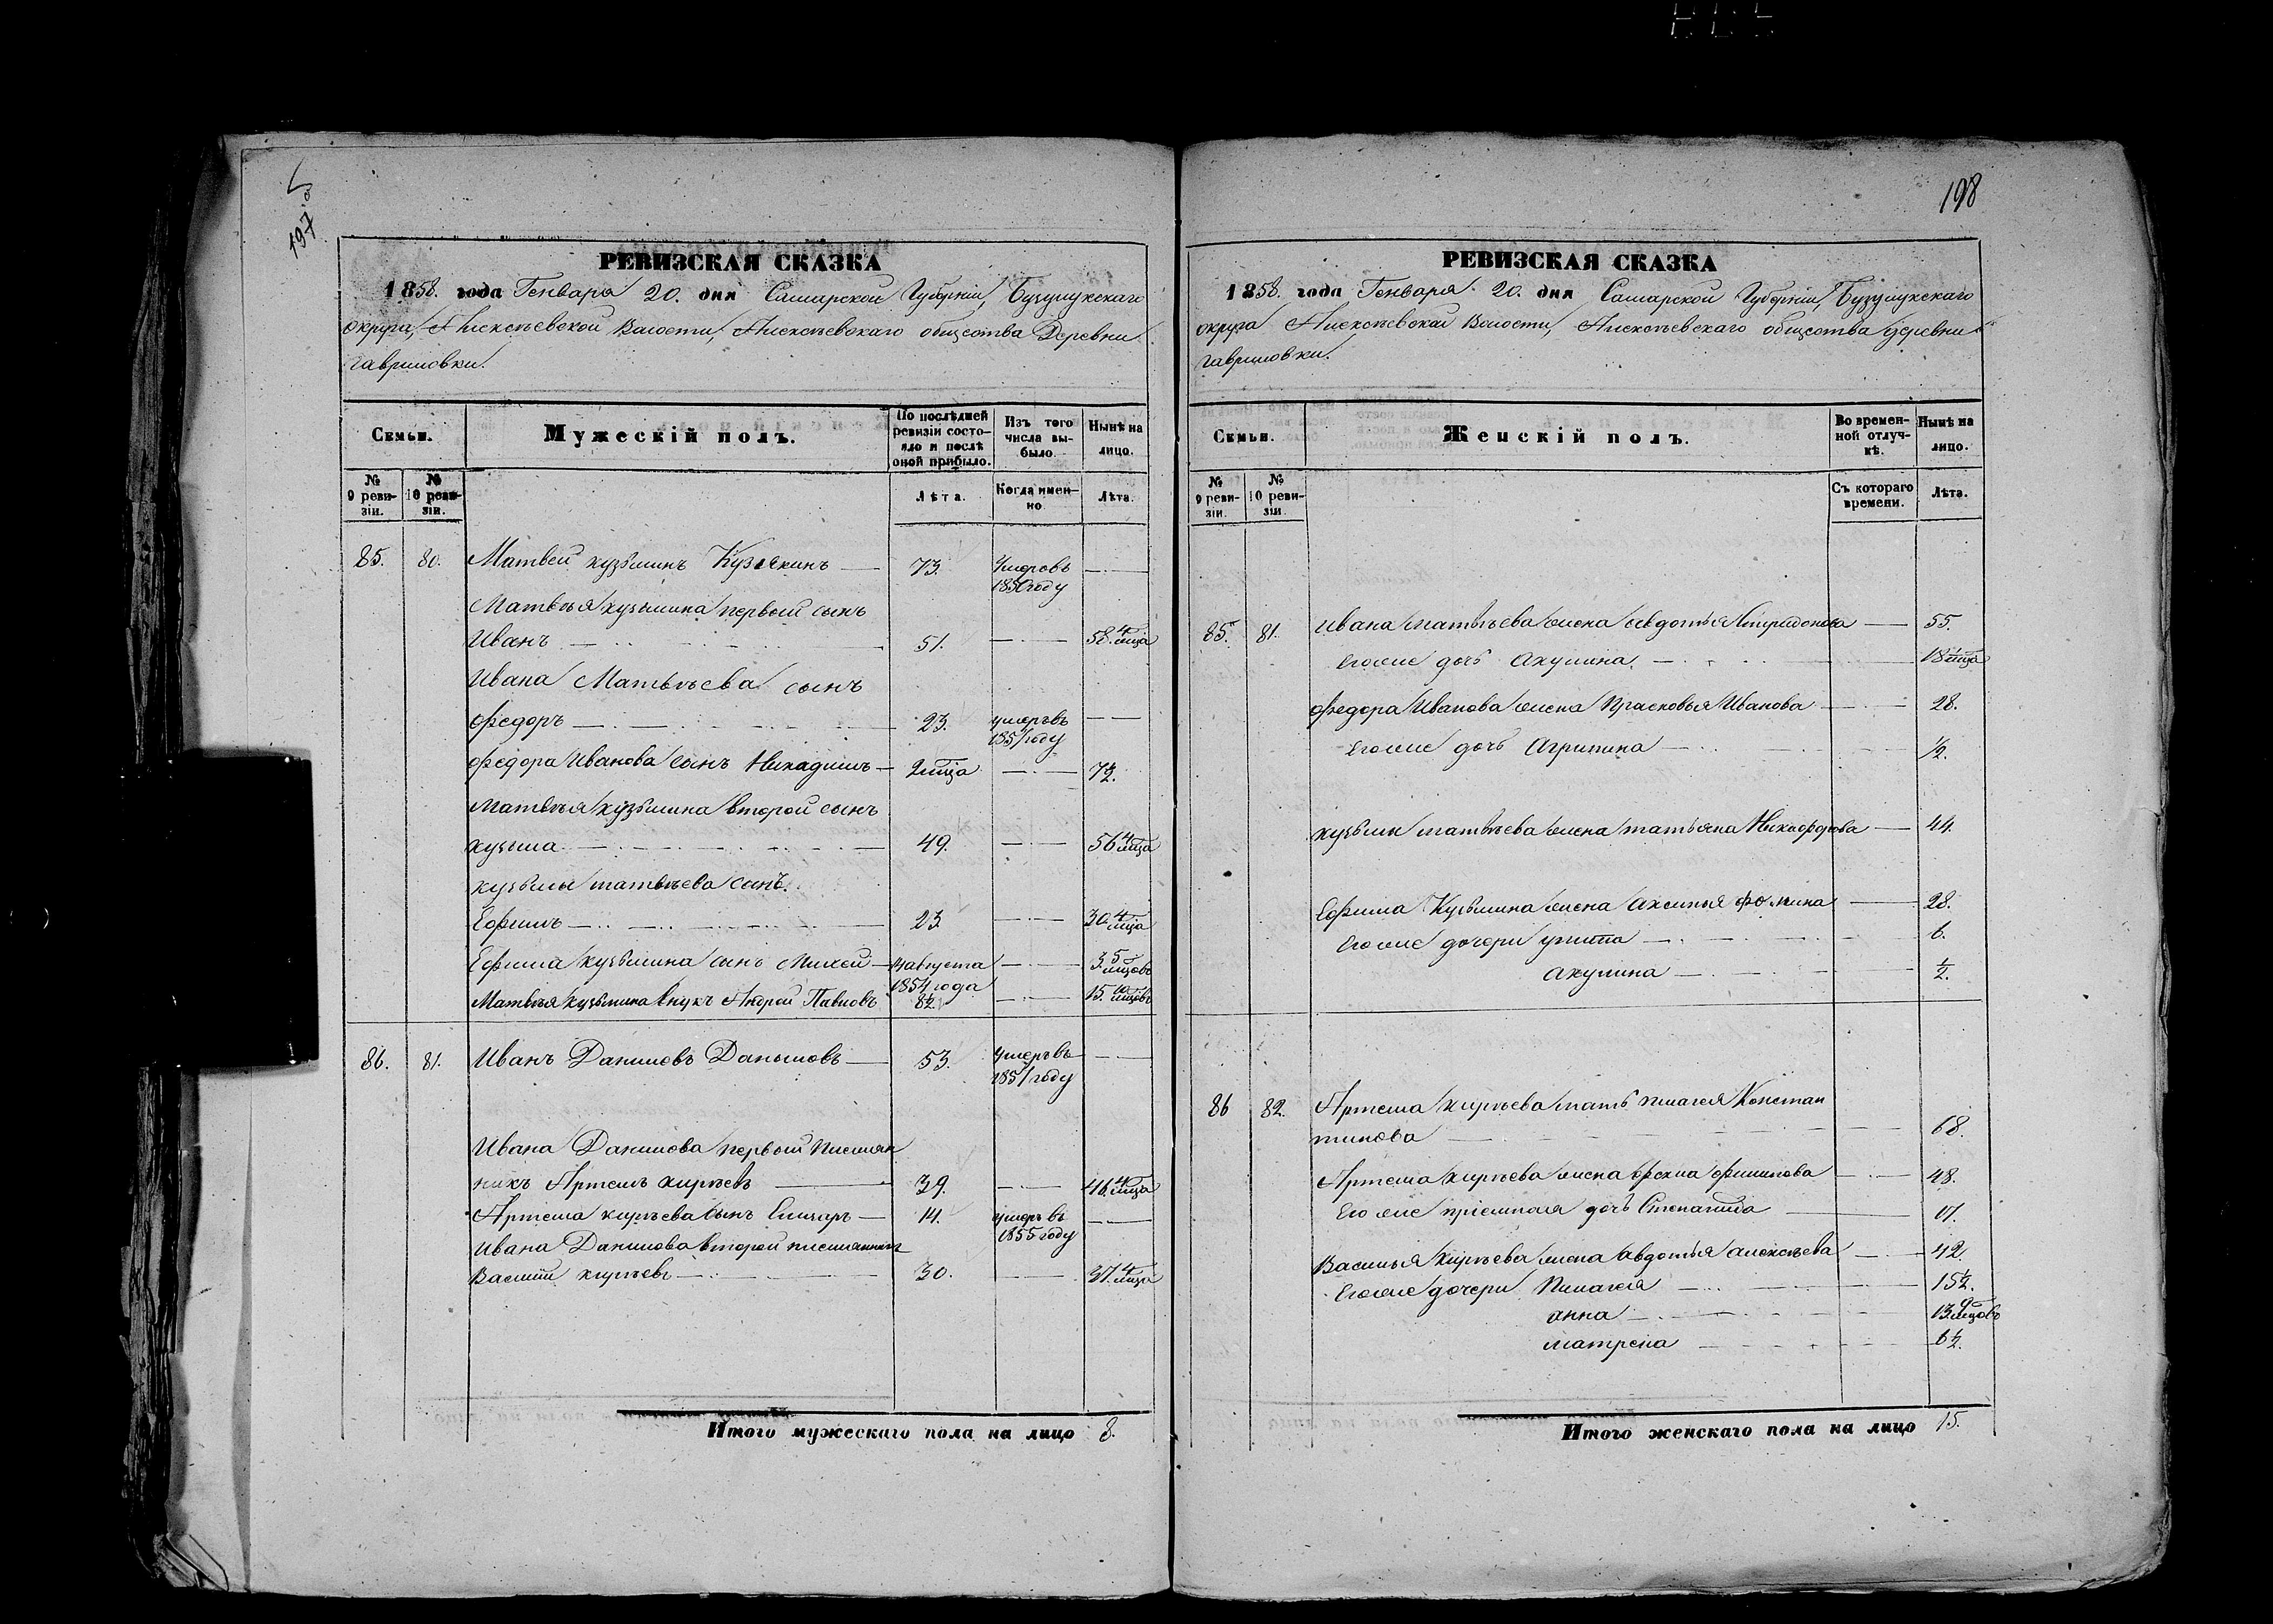 197 об
РЕВИЗСКАЯ СКАЗКА
1858. года Генваря 20. дня Самарской Губерніи, Бузулукскаго
округа, Алексѣевской Волости, Алексѣевскаго общества Деревни
Гавриловки.
Семьи.
Мужескій полъ.
По послѣдней ревизіи состояло и послѣ оной прибыло.
Изъ того числа выбыло.
Нынѣ на лицо.
№ 9 ревизіи.
№ 10 ревизіи.
Лѣта.
Когда именно.
Лѣта.
85. 80. Матвей кузьминъ Кузякинъ 73. Умеръ въ
1850 году
Матвѣя кузьмина первый сынъ
Иванъ 51. 58. 4 мца
Ивана Матвѣева сынъ
Федоръ 23. умеръ въ
1851 году
Федора Иванова сынъ Никадимъ 2 мца 7½.
Матвѣя кузьмина второй сынъ
кузьма 49. 56 4 мца
кузьмы матвѣева сынъ.
Ефимъ 23 30 4 мца
Ефима кузьмина сынъ Михей 14 августа 3. 5 мцовъ
1854 года
Матвѣя кузьмина внукъ Андрей Павловъ 8½. 15. 10 мцовъ
86. 81. Иванъ Даниловъ Даниловъ 53. умеръ въ
1851 году
Ивана Данилова первый племян
никъ Артемъ кирѣевъ 39. 46. 4 мца
Артема кирѣева сынъ Елизаръ 14. умеръ въ
1855 году
Ивана Данилова второй племянникъ
Василий кирѣевъ 30. 37. 4 мца
Итого мужескаго пола на лицо 8.
198
РЕВИЗСКАЯ СКАЗКА
1858. года Генваря 20. дня Самарской Губерніи, Бузулукскаго
округа Алексѣевской Волости, Алексѣевскаго общества деревни
Гавриловки.
Семьи.
Женскій полъ.
Во временной отлучкѣ.
Нынѣ на лицо.
№ 9 ревизіи.
№ 10 ревизіи.
Съ котораго времени.
Лѣта.
85. 81. Ивана матвѣева жена авдотья Спиридонова 55.
Егоже дочь акулина. 18 4 мца
Федора Иванова жена Прасковья Иванова 28.
Егоже дочь Агрипина ½.
кузьмы матвѣева жена татьяна Никифорова 44.
Ефима Кузьмина жена аксинья Фомина 28.
Егоже дочери улита 6.
акулина ½.
86 82. Артема кирѣева мать пилагея Констан
тинова 68.
Артема кирѣева жена Фекла филипова 48.
Его же пріемная дочь Степанида 17.
Василья кирѣева жена авдотья алексѣева 42
Егоже дочери Пилагея 15½.
анна 13. 9 мцовъ
матрена 6½.
Итого женскаго пола на лицо 15.